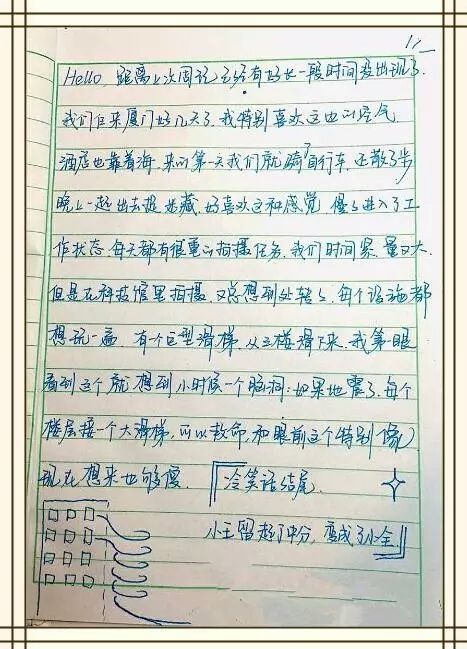 Hello, 距离上次周记已经有好长一段时间没出现了.
我们已来厦门好几天了, 我特别喜欢这边的空气
酒店也靠着海. 来的第一天我们就骑了自行车, 还散了步
晚上一起出去捉迷藏. 好喜欢这种感觉. 慢慢进入了工
作状态. 每天都有很重的拍摄任务. 我们时间紧. 量又大.
但是在科技馆里拍摄. 又总想到处转转, 每个设施都
想玩一遍. 有个巨型滑梯. 从三楼滑下来. 我第一眼
看到这个就想到小时候一个脑洞: 如果地震了. 每个
楼层接一个大滑梯, 可以救命, 和眼前这个特别像
现在想来也够傻. 『冷笑话结尾.
小王留起了中分, 变成了小全』